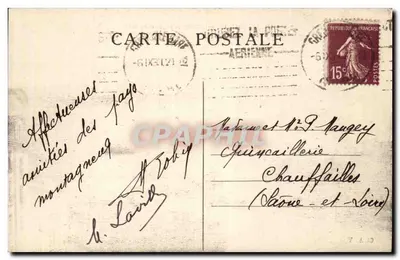 CARTE POSTALE
LA POSTE
AERIENNE
REPUBLIQUE FRANCAISE
15c
POSTES
Affectueuses
amitiés des pays
montagneux
Madame et Mr P. Mangey
Quincaillerie
Chauffailles
(Saône et Loire)
Cparama